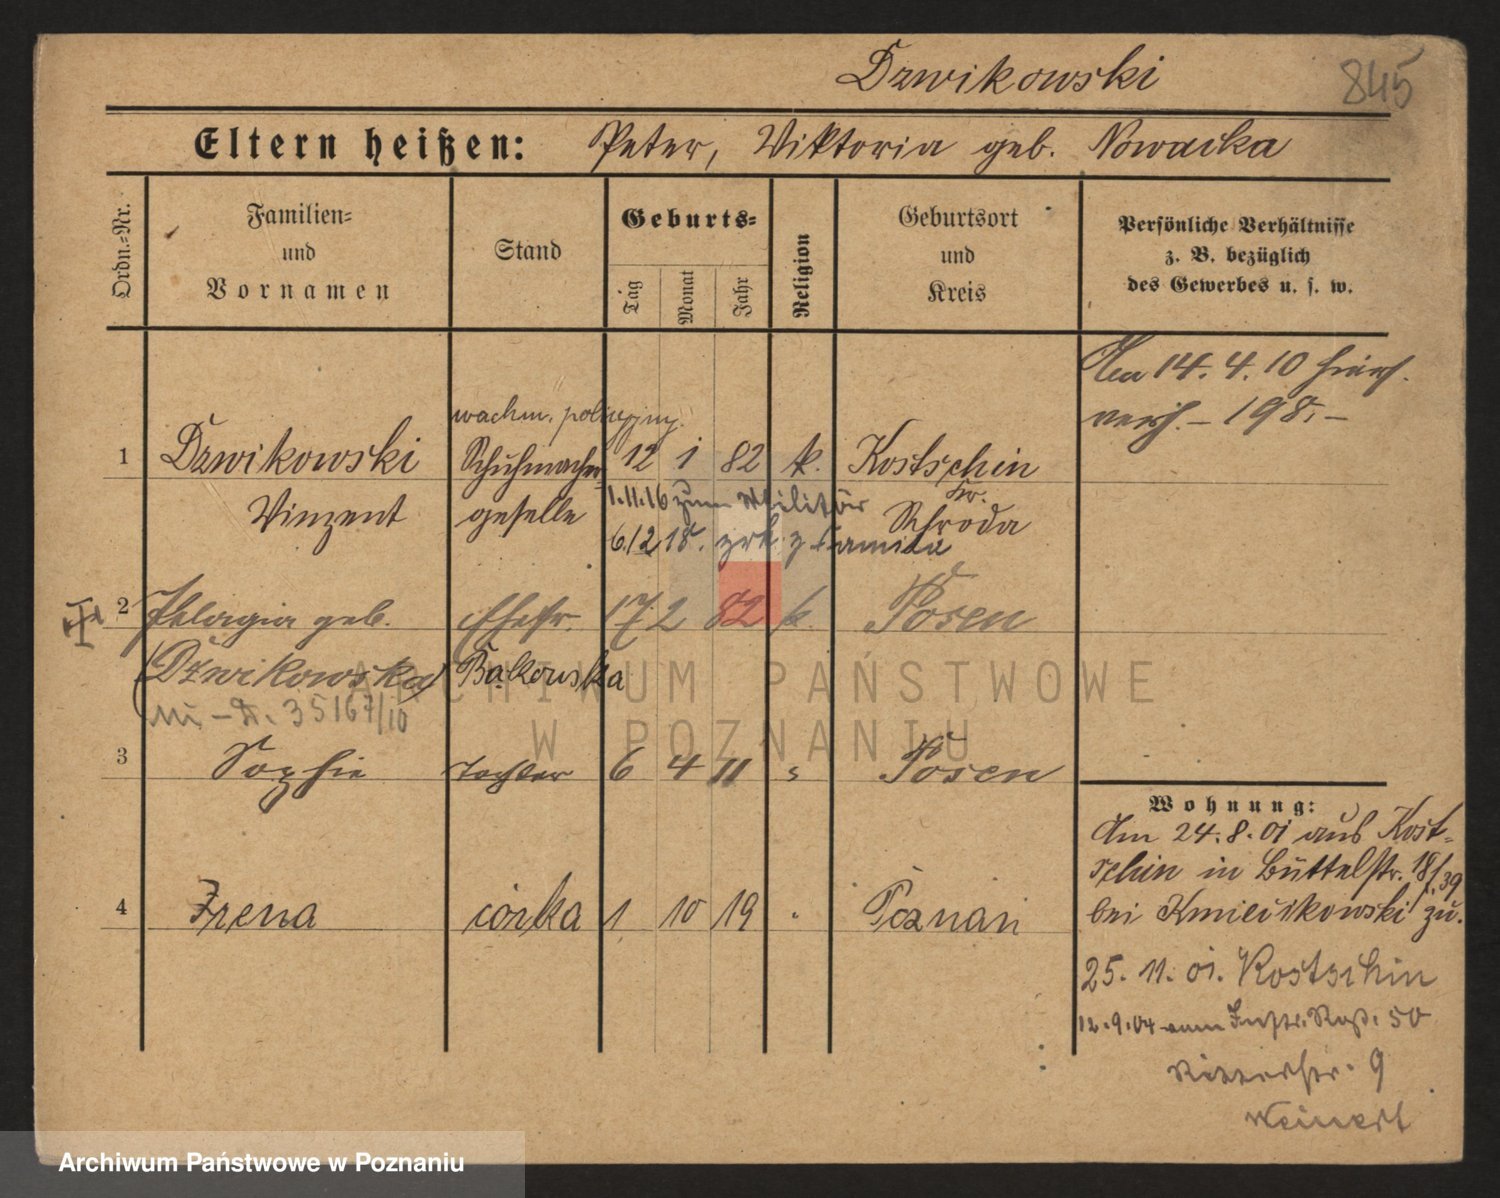 Dzwikowski
845
Eltern heißen: Peter, Viktoria geb. Nowacka
Ordn.-Nr.
Familien- und Vornamen
Stand
Geburts-
Tag
Monat
Jahr
Religion
Geburtsort und Kreis
Persönliche Verhältnisse
z. B. bezüglich
des Gewerbes u. s. w.
14. 4. 10
198.-
wachm.
1 Dzwikowski Schuhmacher- 12 1 82 k. Kostschin
Vinzent geselle 1.11.16 zum Militär Kr. Schroda
6.12 18. zrk. z
2 Pelagia geb. Ehefr. 17 2 82 k. Posen
(Dzwikowska) Bąkowska
35167/10
3 Sophie Tochter 6 4 11 Posen
4 Irena córka 1 10 19 Poznań
Wohnung:
Am 24. 8. 01 aus Kost-
schin in Büttelstr. 18/39
bei Kmiecikowski zu.
25. 11. 01. Kostschin
12. 9. 04 50
Ritterstr. 9
Weinert
ARCHIWUM PAŃSTWOWE
W POZNANIU
Archiwum Państwowe w Poznaniu